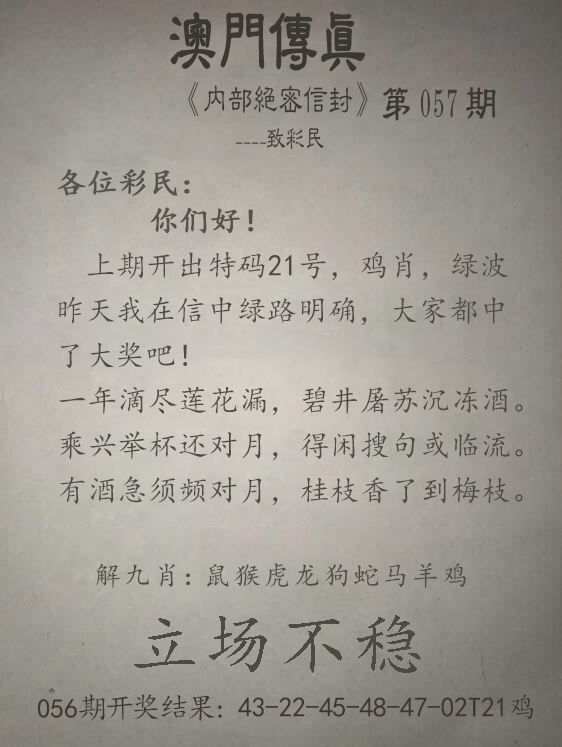 澳門傳眞
《内部絕密信封》第057期
----致彩民
各位彩民：
你们好！
上期开出特码21号，鸡肖，绿波
昨天我在信中绿路明确，大家都中
了大奖吧！
一年滴尽莲花漏，碧井屠苏沉冻酒。
乘兴举杯还对月，得闲搜句或临流。
有酒急须频对月，桂枝香了到梅枝。
解九肖：鼠猴虎龙狗蛇马羊鸡
立场不稳
056期开奖结果：43-22-45-48-47-02T21鸡